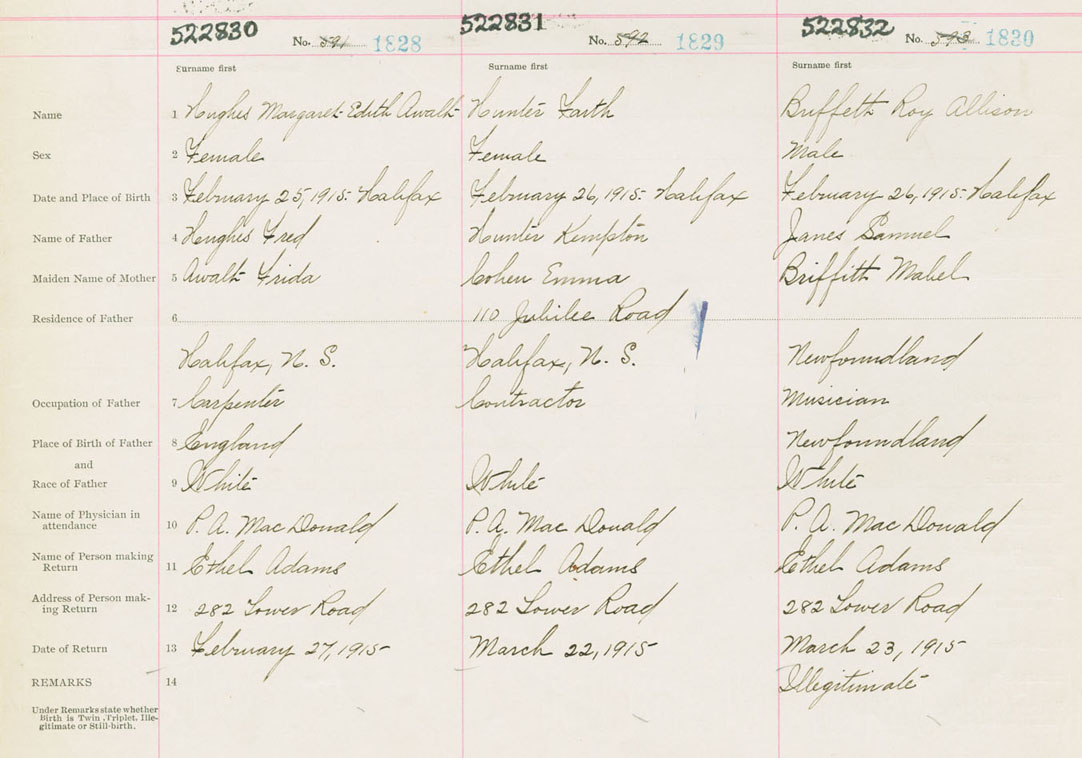 522830 No. 591 1828 522831 No. 592 1829 522832 No. 593 1830
Surname first Surname first Surname first
Name 1 Hughes Margaret Edith Awalt Hunter Faith Briffett Roy Allison
Sex 2 Female Female Male
Date and Place of Birth 3 February 25, 1915- Halifax February 26, 1915- Halifax February 26, 1915- Halifax
Name of Father 4 Hughes Fred Hunter Kempton Janes Samuel
Maiden Name of Mother 5 Awalt Frida Cohen Emma Briffitt Mabel
Residence of Father 6 110 Jubilee Road
Halifax, N. S. Halifax, N. S. Newfoundland
Occupation of Father 7 Carpenter Contractor Musician
Place of Birth of Father 8 England Newfoundland
and
Race of Father 9 White White White
Name of Physician in
attendance 10 P. A. MacDonald P. A. MacDonald P. A. MacDonald
Name of Person making
Return 11 Ethel Adams Ethel Adams Ethel Adams
Address of Person mak-
ing Return 12 282 Lower Road 282 Lower Road 282 Lower Road
Date of Return 13 February 27, 1915- March 22, 1915 March 23, 1915
REMARKS 14 Illegitimate
Under Remarks state whether
Birth is Twin, Triplet, Ille-
gitimate or Still-birth.